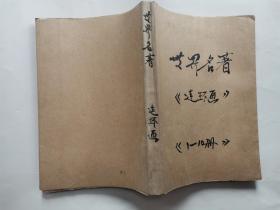 世界名著
连环画
世界名著
《连环画》
《1—10册》